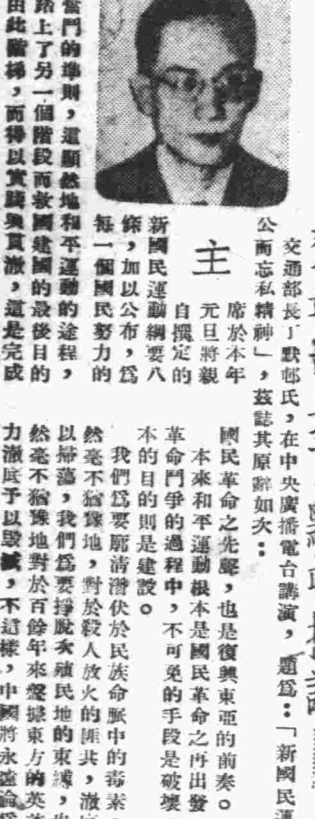 交通部長丁默邨氏,在中央廣播電台講演,題爲:「新國民運
公而忘私精神」,茲誌其原辭如次:
主
席於本年
元旦將親
自撰定的
新國民運動綱要八
條,加以公布,爲
每一個國民努力的
奮鬥的準則,這顯然地和平運動的途程,
踏上了另一個階段而救國建國的最後目的
由此階梯,而得以實踐與貫澈,這是完成
國民革命之先聲,也是復興東亞的前奏。
本來和平運動根本是國民革命之再出發
革命鬥爭的過程中,不可免的手段是破壞
本的目的則是建設。
我們爲要廓清潛伏於民族命脈中的毒素
然毫不猶豫地,對於殺人放火的匪共,澈
以掃蕩,我們爲要掙脫次殖民地的束縛,
然毫不猶豫地對於百餘年來盤據東方的英
力澈底予以毀滅,不這樣,中國將永遠淪